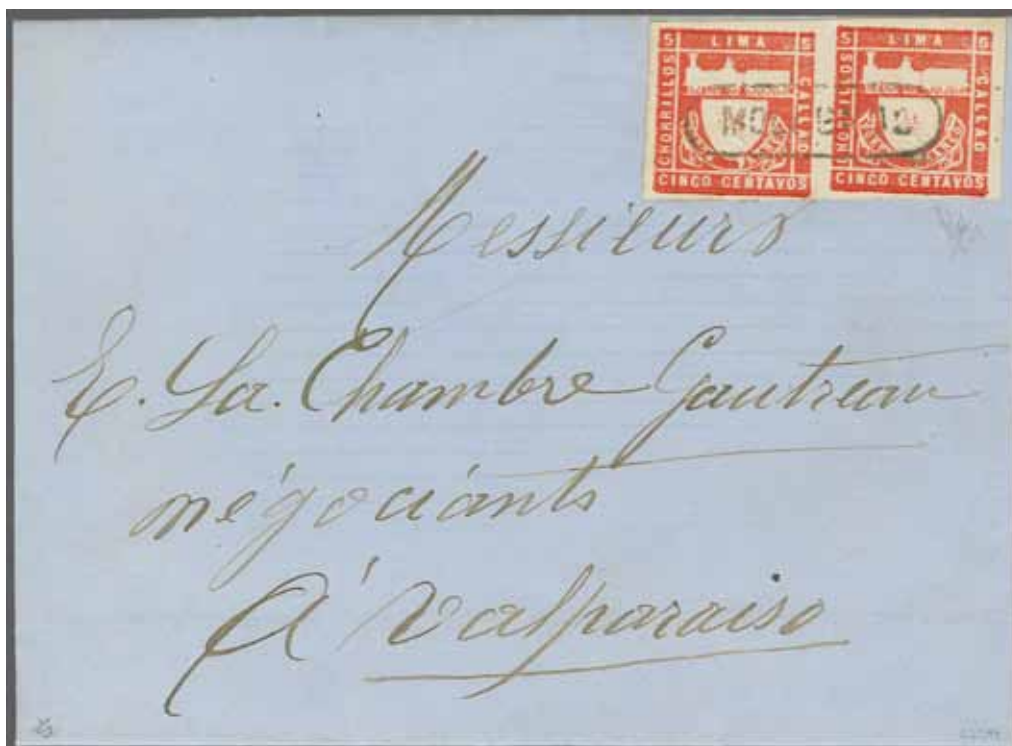 5 LIMA 5
CHORRILLOS
CALLAO
CINCO CENTAVOS
5 LIMA 5
CHORRILLOS
CALLAO
CINCO CENTAVOS
Messieurs
E. La. Chambre Gautreau
négociants
À Valparaiso